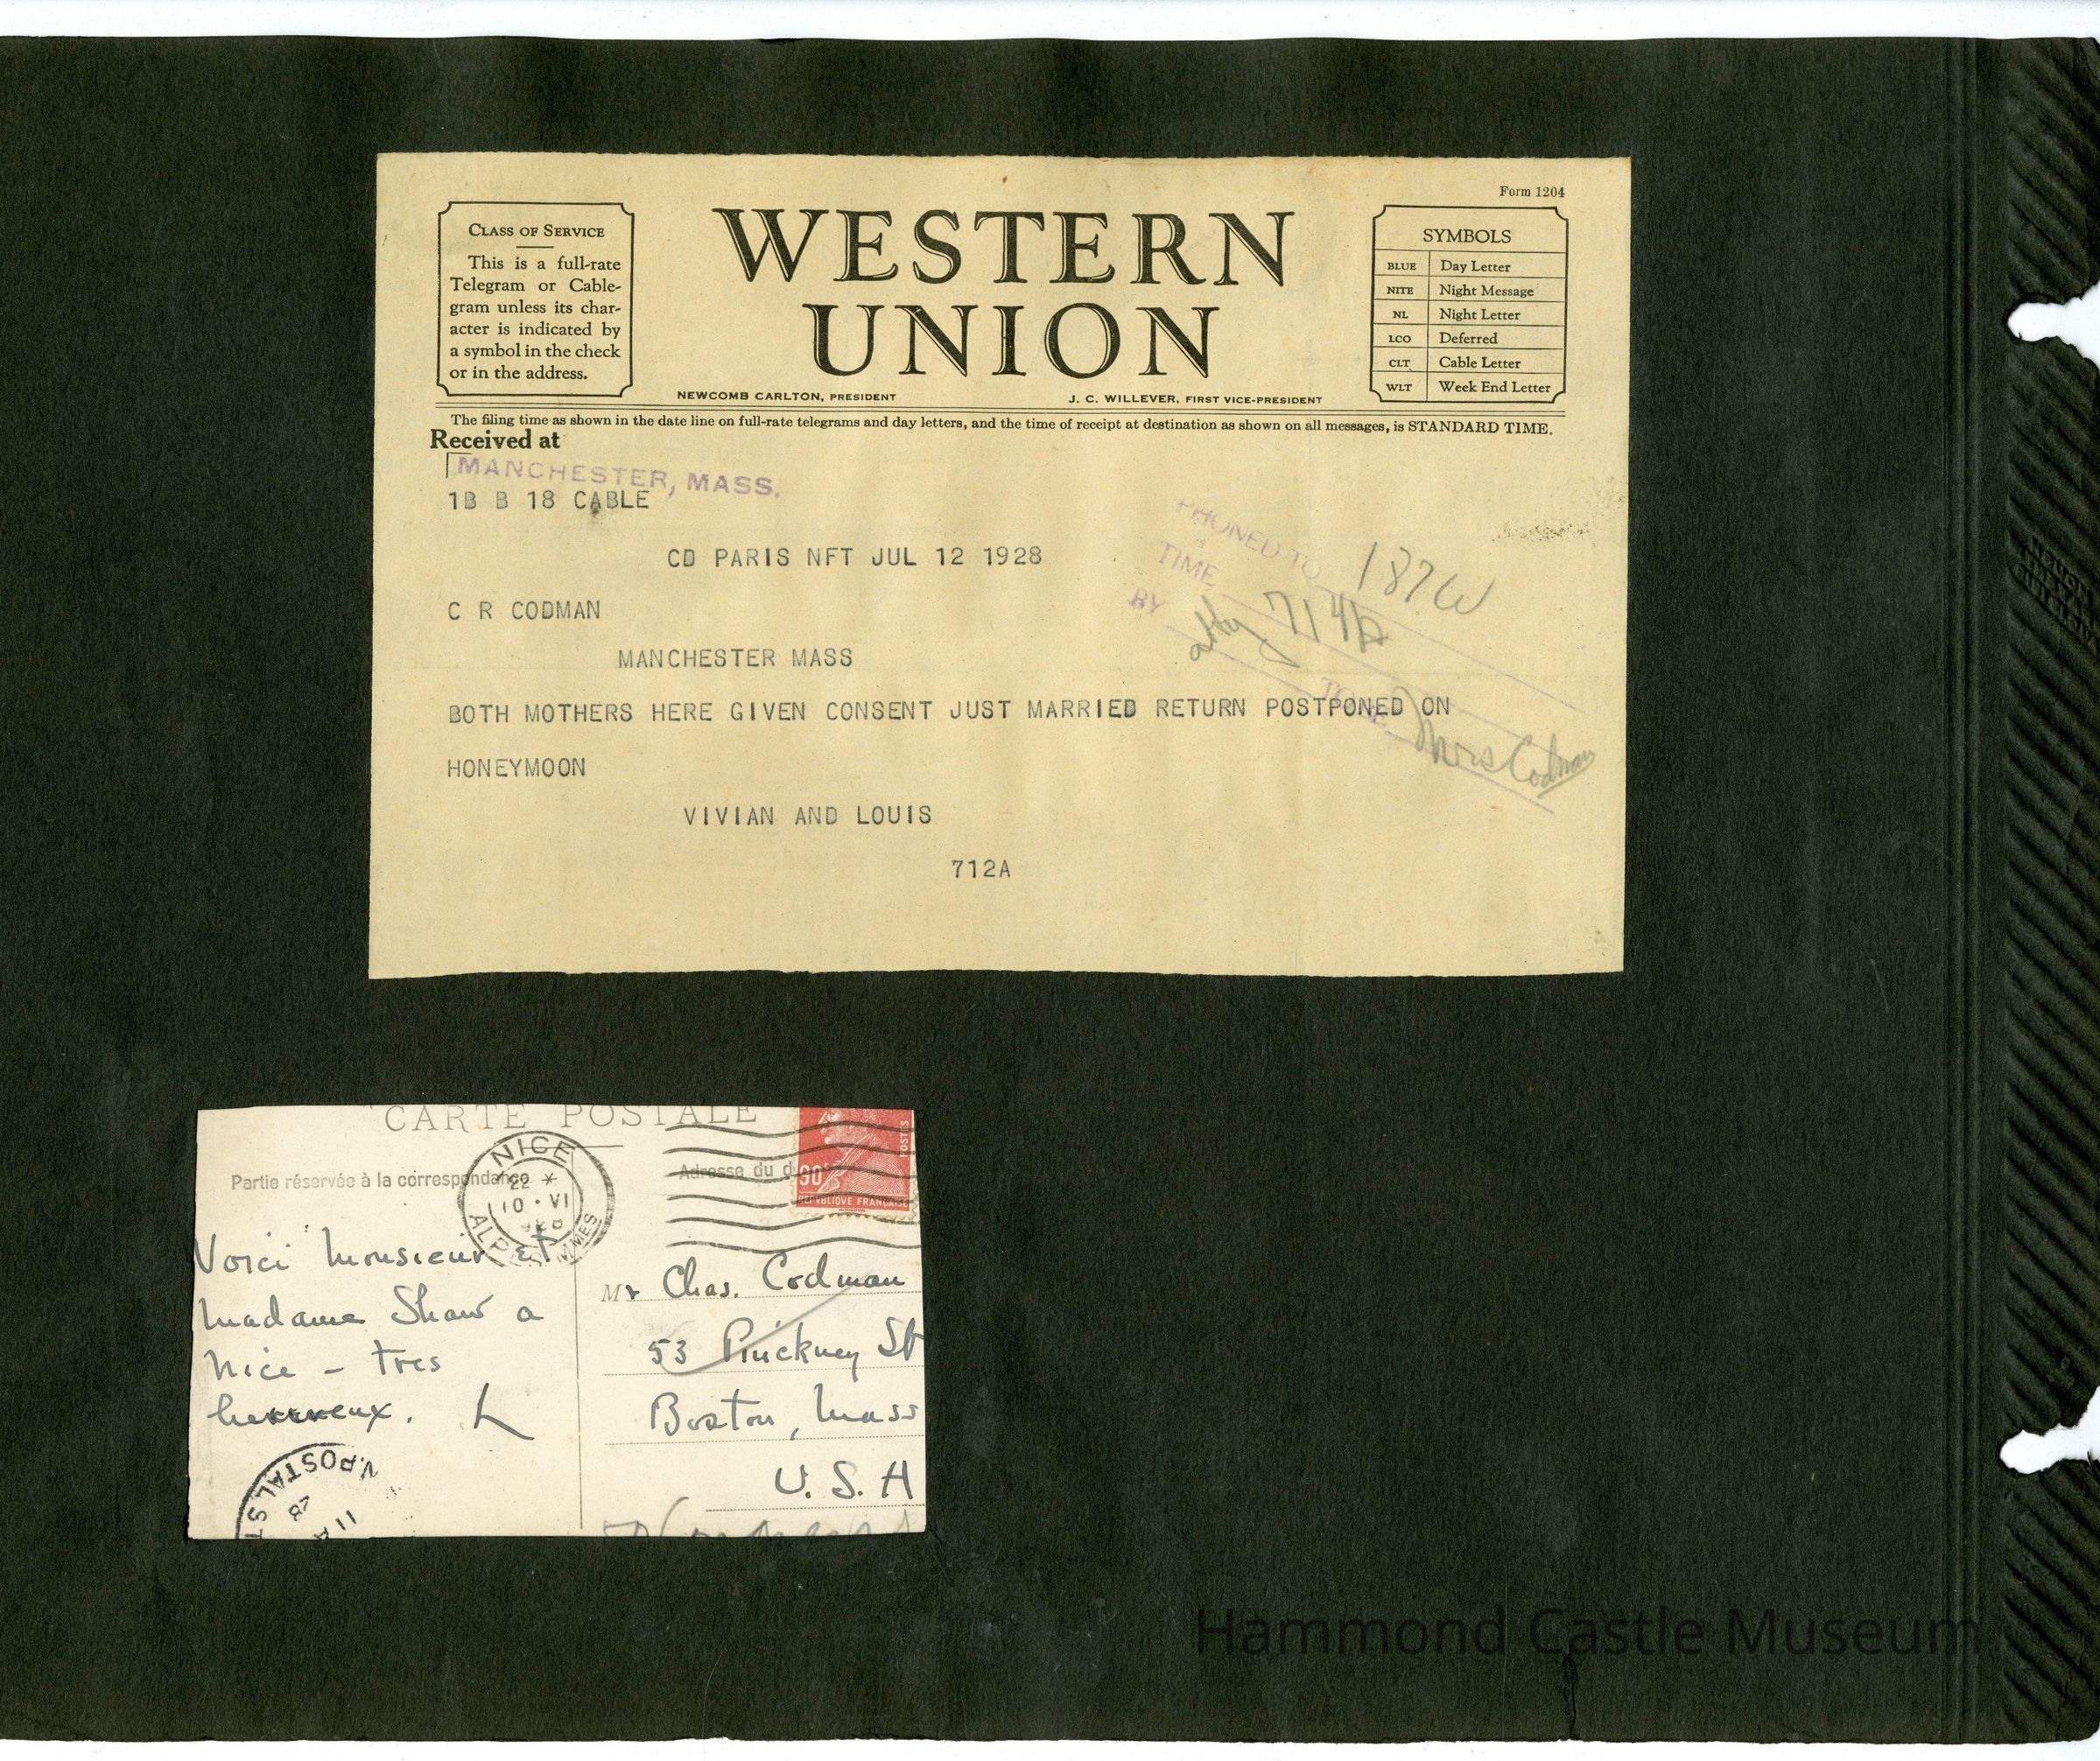 Form 1204
CLASS OF SERVICE
This is a full-rate
Telegram or Cable-
gram unless its char-
acter is indicated by
a symbol in the check
or in the address.
WESTERN
UNION
NEWCOMB CARLTON, PRESIDENT
J. C. WILLEVER, FIRST VICE-PRESIDENT
SYMBOLS
BLUE Day Letter
NITE Night Message
NL Night Letter
LCO Deferred
CLT Cable Letter
WLT Week End Letter
The filing time as shown in the date line on full-rate telegrams and day letters, and the time of receipt at destination as shown on all messages, is STANDARD TIME.
Received at
MANCHESTER, MASS.
1B B 18 CABLE
CD PARIS NFT JUL 12 1928
C R CODMAN
MANCHESTER MASS
BOTH MOTHERS HERE GIVEN CONSENT JUST MARRIED RETURN POSTPONED ON
HONEYMOON
VIVIAN AND LOUIS
712A
PHONED TO 187W
TIME 714
BY
TO Mrs Codman
CARTE POSTALE
Partie réservée à la correspondance
Adresse du d
NICE
22 *
10 · VI
ALP MMES
POSTES
90c
REPVBLIQVE FRANCAISE
Voici Monsieur et
Madame Shaw a
Nice - tres
heureux. L
Mr Chas. Codman
53 Pinckney St
Boston, Mass
U.S.A
V.POSTAL ST
11 A
28
Hammond Castle Museum